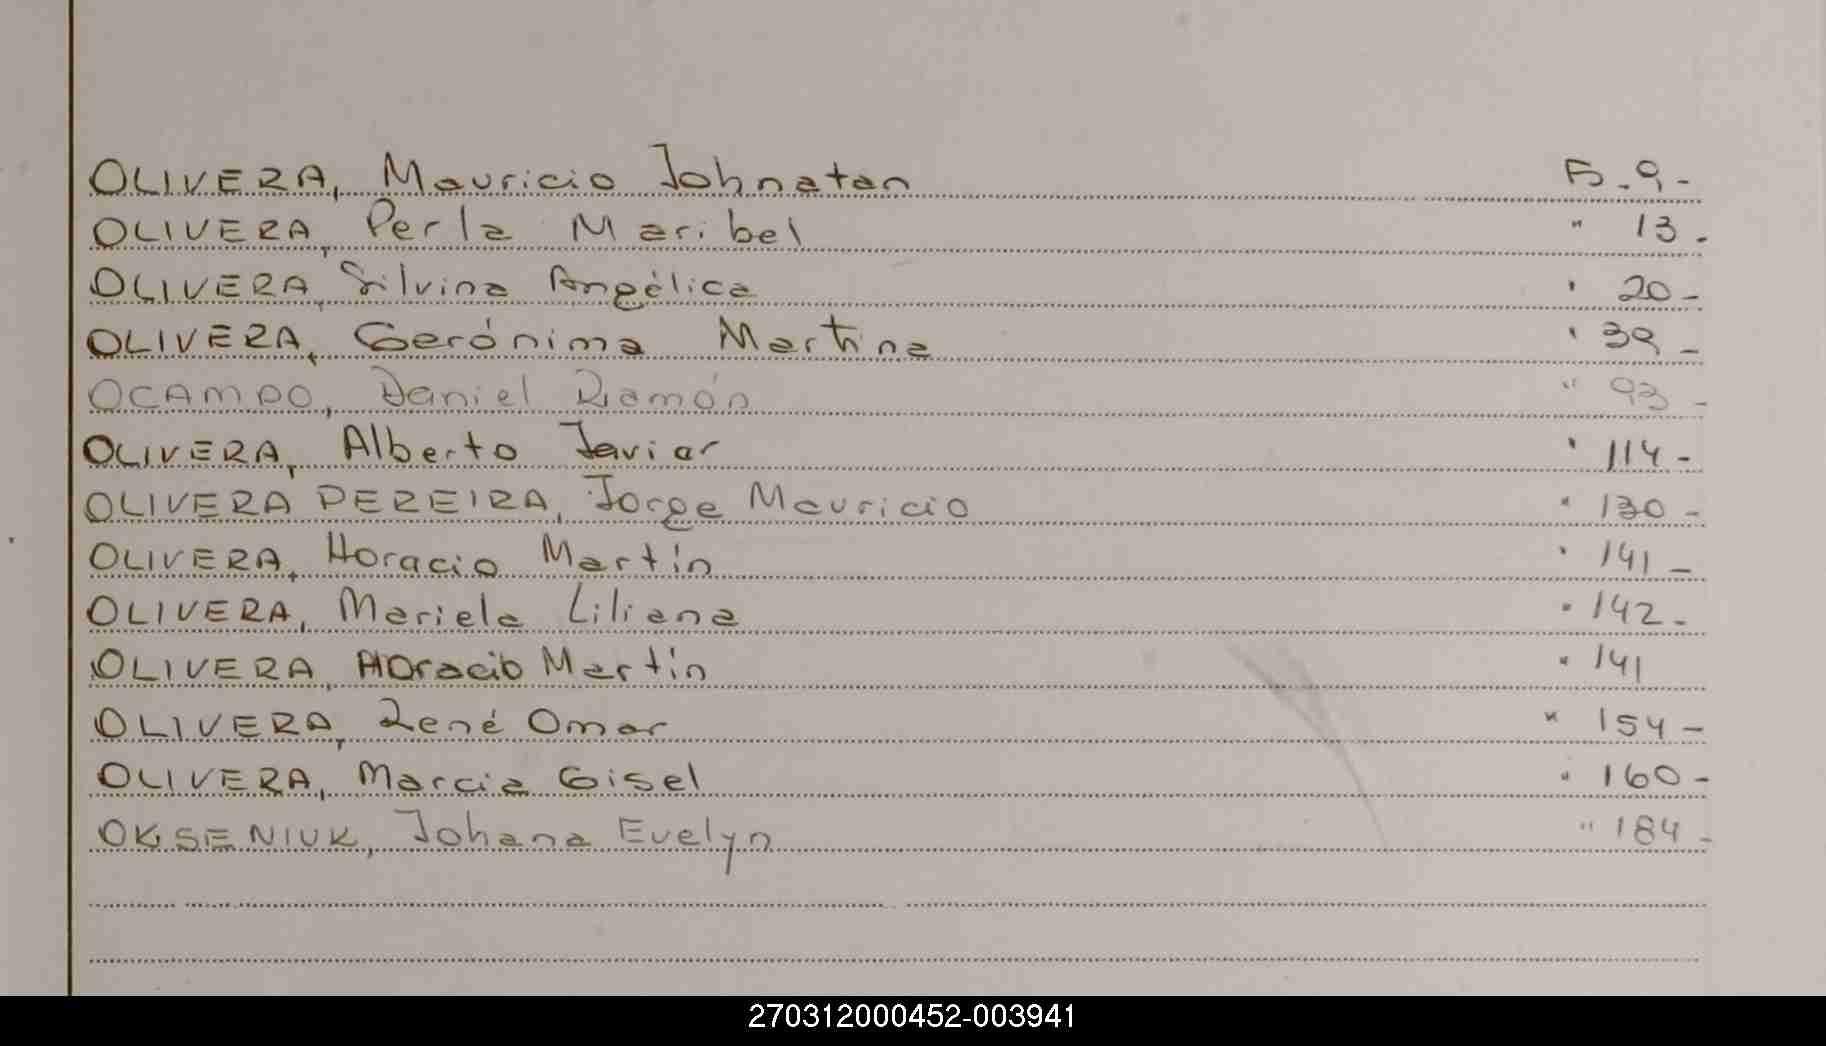 OLIVERA, Mauricio Johnatan Fo. 9-
OLIVERA, Perla Maribel " 13-
OLIVERA, Silvina Angélica " 20-
OLIVERA, Gerónima Martina " 39-
OCAMPO, Daniel Ramón " 93-
OLIVERA, Alberto Javier " 114-
OLIVERA PEREIRA, Jorge Mauricio " 130-
OLIVERA, Horacio Martín " 141-
OLIVERA, Mariela Liliana " 142-
OLIVERA, Horacio Martín " 141
OLIVERA, René Omar " 154-
OLIVERA, Marcia Gisel " 160-
OKSENIUK, Johana Evelyn " 184-
270312000452-003941